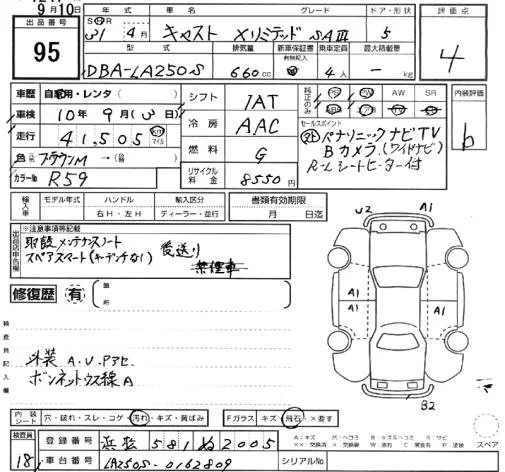 9月10日
出品番号 95
年式 車名 グレード ドア・形状 評価点
31 4月 キャスト Xリミテッド SAⅢ 5 4
型式 排気量 新車保証書 乗車定員 最大積載量
有無記入
DBA-LA250S 660cc 4人 ― kg
車歴 自家用・レンタ シフト IAT 純正品のみ PS PW AW SR 内装評価
車検 10年9月(3)日 冷房 AAC b
走行 41,505 km マイル セールスポイント
色 ブラウンM 燃料 G パナソニックナビTV
Bカメラ(ワイドナビ)
カラーNo R59 リサイクル料金 8550円 R-Lシートヒーター付
輸入車 モデル年式 ハンドル 輸入区分 書類有効期限
右H・左H ディーラー・並行 月 日迄
出品店申告欄 ※注意事項等記載
取説 メンテナンスノート 後送り
禁煙車
修復歴 有 箇所
検査員記入欄
外装A.U.Pアセ
ボンネットウス線A
U2 A1
A1 A1
B2
内装シート 穴・破れ・スレ・コゲ・汚れ・キズ・黄ばみ Fガラス キズ・飛石・×要す
A:キズ U:ヘコミ B:キズ&ヘコミ S:サビ
××:交換済 X:要交換 W:波板 C:腐食有 P:塗装 スペア
検査員 18 登録番号 浜松 581 ぬ 2005
車台番号 LA250S-0162809 シリアルNo